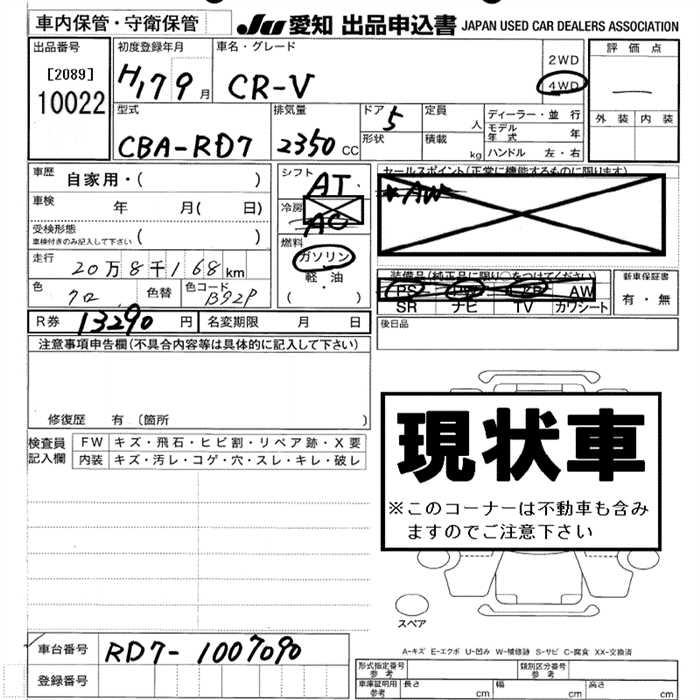 車内保管・守衛保管
JU 愛知 出品申込書 JAPAN USED CAR DEALERS ASSOCIATION
出品番号
[2089]
10022
初度登録年月
H17 9月
車名・グレード
CR-V
2WD
4WD
評価点
外装 内装
型式
CBA-RD7
排気量
2350 CC
ドア
5
形状
定員
人
積載
kg
ディーラー・並行
モデル年式 年
ハンドル 左・右
車歴
自家用・( )
車検
年 月( 日)
受検形態
車検付きのみ記入して下さい ( )
走行
20万8千168km
色
クロ
色替
色コード
B92P
シフト
AT
冷房
AC
燃料
ガソリン
軽・油
( ・ )
セールスポイント(正常に機能するものに限ります)
AW
装備品(純正品に限り○をつけてください)
PS AW
SR ナビ TV カワシート
新車保証書
有・無
R券 13290円
名変期限 月 日
後日品
注意事項申告欄(不具合内容等は具体的に記入して下さい)
修復歴 有 〔箇所 〕
検査員記入欄
FW キズ・飛石・ヒビ割・リペア跡・X要
内装 キズ・汚レ・コゲ・穴・スレ・キレ・破レ
現状車
※このコーナーは不動車も含み
ますのでご注意下さい
スペア
A-キズ E-エクボ U-凹み W-補修跡 S-サビ C-腐食 XX-交換済
車台番号 RD7-1007090
登録番号
形式指定番号
参考
類別区分番号
参考
車庫証明用
参考
長さ cm 幅 cm 高さ cm